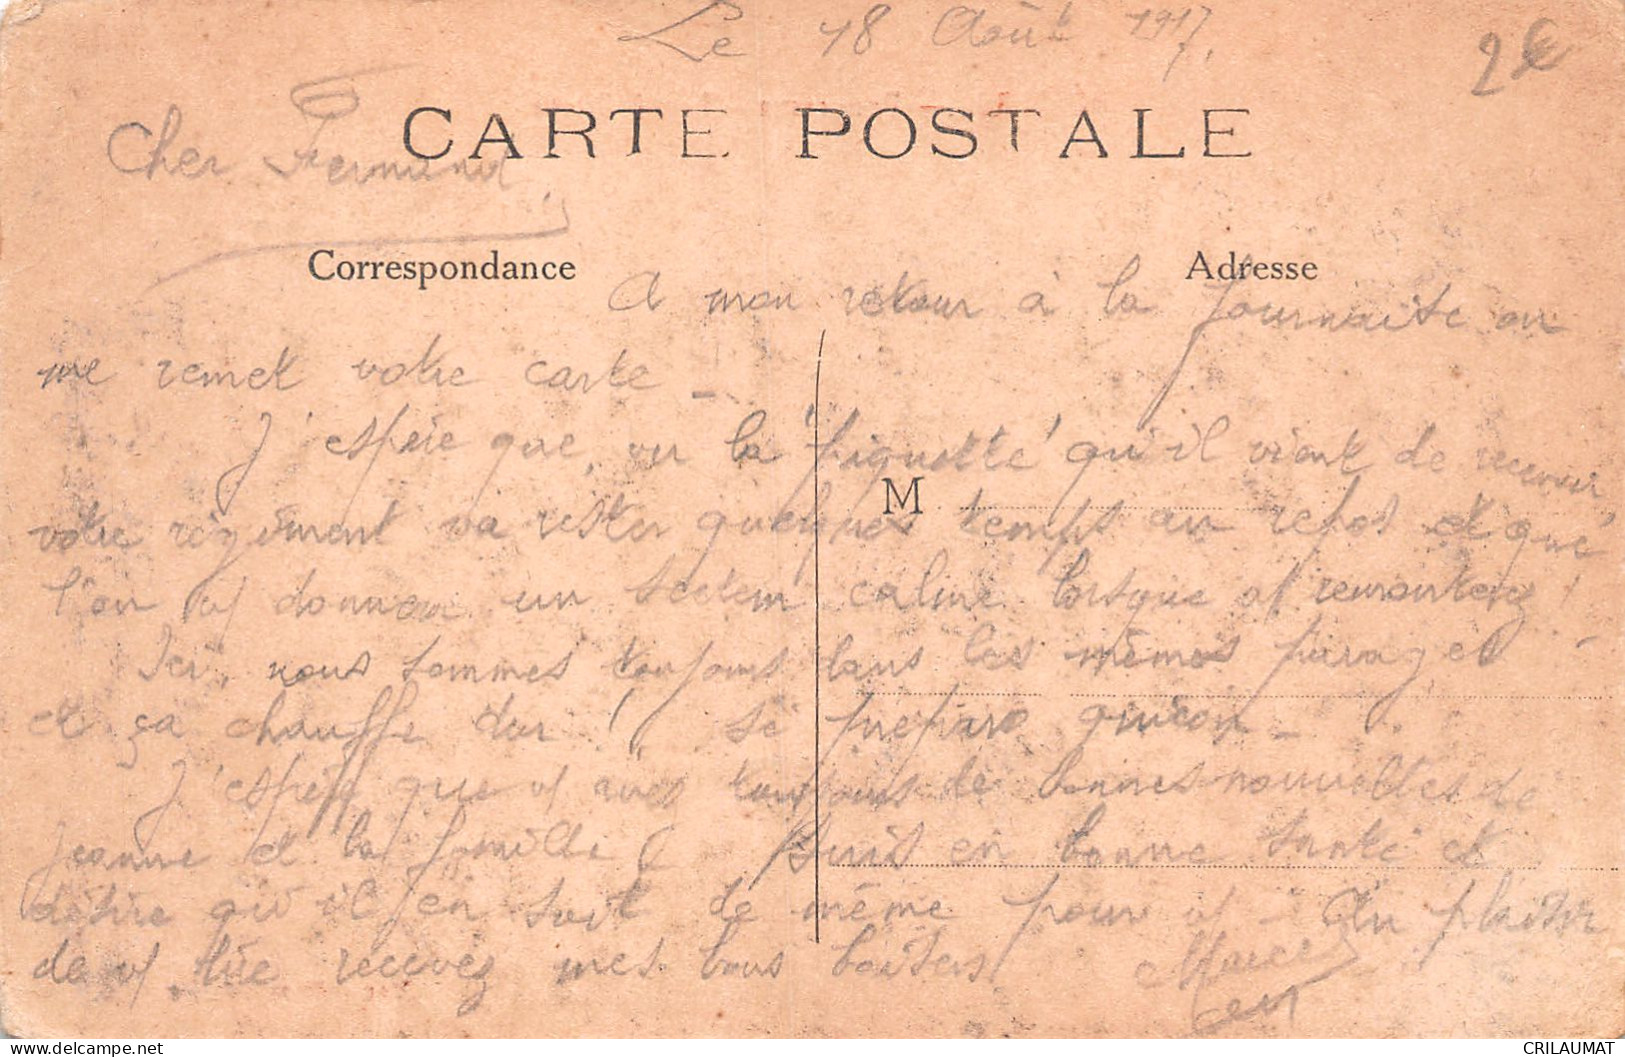 Le 18 Août 1917.
2€
CARTE POSTALE
Cher Fernand
Correspondance
Adresse
A mon retour à la Journaite on
me remet votre carte _
J'espère que, vu la "piquette" qu'il vient de recevoir,
M
votre régiment va rester quelques temps au repos et que
l'on vs donnera un secteur calme lorsque vs remonterez !
Ici, nous sommes toujours dans les mêmes parages
et ça chauffe dur ! Se prépare _
J'espère que vs avez toujours de bonnes nouvelles de
Jeanne et la famille Suis en bonne santé et
désire qu'il en soit de même pour vs - Au plaisir
de vs lire recevez mes bons baisers Marcel
CRILAUMAT